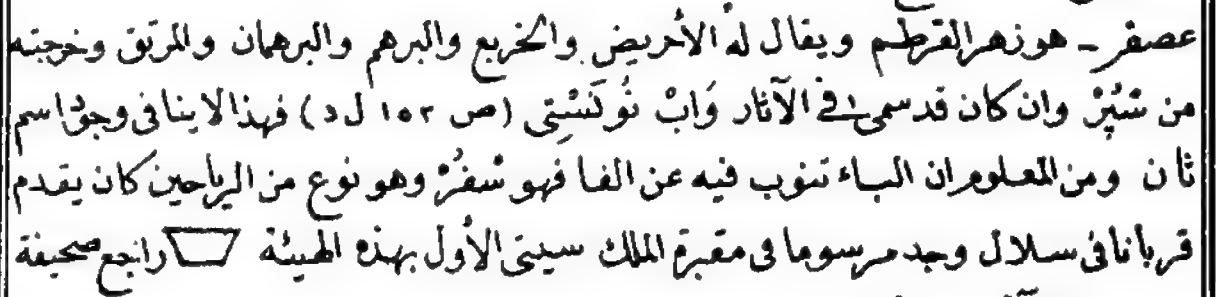 عصفر ـ هو زهر القرطم ويقال له الأحريض والخريع والبرهم والبرهمان والمريق وخرجته
من شبر وان كان قد سمى فى الآثار وَابْ نُوكَسْتِى (ص ١٥٢ ل د) فهذا لاينافى وجود اسم
ثان ومن المعلوم ان الباء تنوب فيه عن الفا فهو شفر وهو نوع من الرياحين كان يقدم
قربانا فى سلال وجد مرسوما فى مقبرة الملك سيتى الأول بهذه الهيئة راجع صحيفة